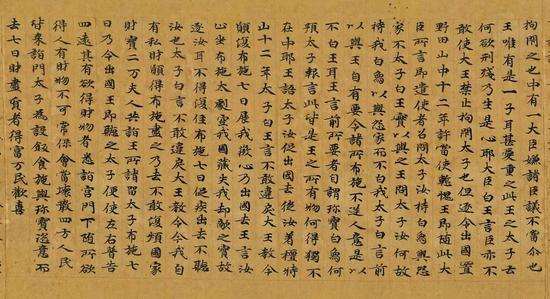 拘閉之中有一大臣嫌諸臣議不當尒也
王唯有是一子耳甚愛重之此王之太子云
何欲刑殘乃生是心耶大臣白王言臣亦不
敢使大王禁止拘閉太子也但逐令出國置
野田山中十二年許當使慙愧王即隨此大
臣所言即遣使者召問太子汝持白象與怨
家不太子白王實以與之王問太子汝何故
持我白象以與怨家而不白我太子白言前
以與王自有要令諸所布施不逆人意是以
不白王耳王言前所要者自謂珍寶白象何
預太子報言此皆是王之所有物何得獨不
在中耶王語太子汝促出國去徙汝著檀特
山十二年太子白王言不敢違戾大王教令
願復布施七日展我微心乃出國去王言汝
心坐布施太劇空我國藏失我却敵之寶故
逐汝耳不得復住布施七日促疾出去不聽
汝也太子白言不敢違戾大王教令今我自
有私財願得布施盡之乃去不敢復煩國家
財寶二万夫人共詣王所請留太子布施七
日乃令出國王即聽之太子便使左右普告
四遠其有欲得財物者悉詣宮門下随所欲
得人有財物不可常保會當壞散四方人民
皆來詣門太子為設飯食施與珍寶恣意而
去七日財盡貧者得富万民歡喜